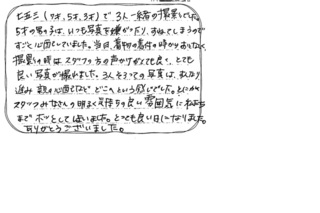 七五三(7才、5才、3才)で3人一緒の撮影でした。
5才の男の子は、いつも写真を嫌がったり、すねてしまうので
すごく心配していました。当日、着物の着付の時からおりなく
撮影の時はスタッフさんの声かけがとても良く、とても
良い写真が撮れました。3人そろっての写真は、
進み 親の心配など どこへ という感じでした。とにかく
スタッフみなさんの明るく気持ちの良い雰囲気に
までホッとしてしまいました。とっても良い日になりました。
ありがとうございました。